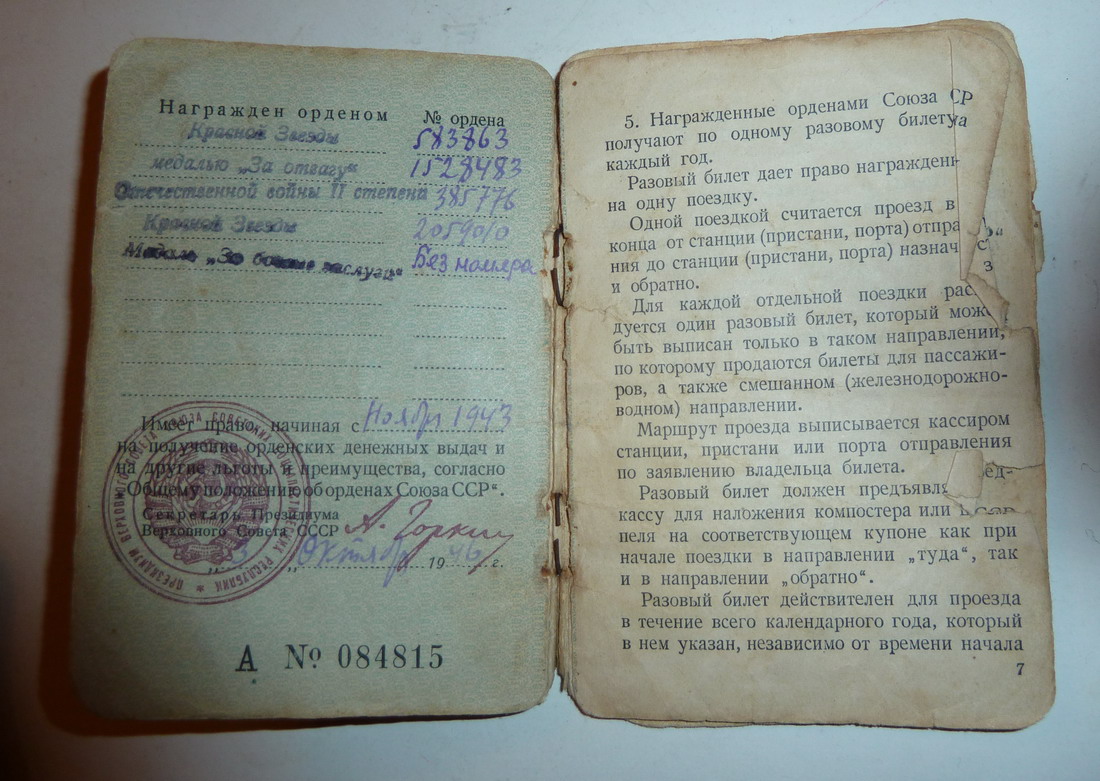 Награжден орденом № ордена
Красной Звезды 583863
медалью „За отвагу“ 1528483
Отечественной войны II степени 385776
Красной Звезды 2059010
Медаль „За боевые заслуги“ Без номера
Имеет право, начиная с Ноября 1943
на получение орденских денежных выдач и
на другие льготы и преимущества, согласно
„Общему положению об орденах Союза ССР“.
Секретарь Президиума
Верховного Совета СССР А. Горкин
Октября 1946 г.
ПРЕЗИДИУМ ВЕРХОВНОГО СОВЕТА СОЮЗА СОВЕТСКИХ СОЦИАЛИСТИЧЕСКИХ РЕСПУБЛИК
А № 084815
5. Награжденные орденами Союза СР
получают по одному разовому билету
каждый год.
Разовый билет дает право награжден
на одну поездку.
Одной поездкой считается проезд в
конца от станции (пристани, порта) отпра
ния до станции (пристани, порта) назнач
и обратно.
Для каждой отдельной поездки рас
дуется один разовый билет, который може
быть выписан только в таком направлении,
по которому продаются билеты для пассажи-
ров, а также смешанном (железнодорожно-
водном) направлении.
Маршрут проезда выписывается кассиром
станции, пристани или порта отправления
по заявлению владельца билета.
Разовый билет должен предъявл ед-
кассу для наложения компостера или
пеля на соответствующем купоне как при
начале поездки в направлении „туда“, так
и в направлении „обратно“.
Разовый билет действителен для проезда
в течение всего календарного года, который
в нем указан, независимо от времени начала
7